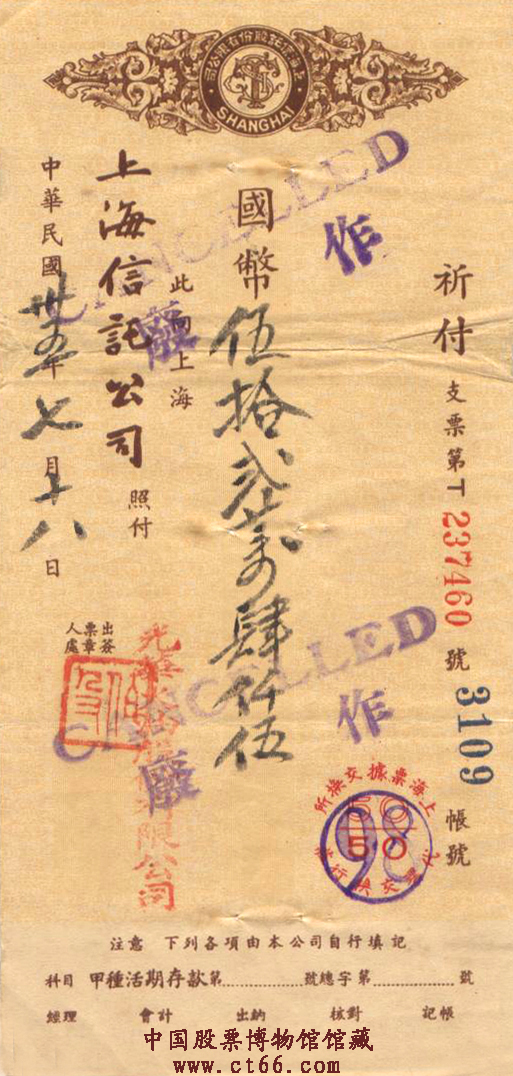 上海信託股份有限公司
SHANGHAI
祈付 支票第T 237460 號 3109 帳號
國幣伍拾弍萬肆仟伍
此向上海
上海信託公司 照付
中華民國卅五年七月十八日
CANCELLED
作廢
CANCELLED
作廢
出票人
簽章處
有限公司
上海票據交換所
50
98
代理交換行
注意 下列各項由本公司自行填記
科目 甲種活期存款第 號總字第 號
經理 會計 出納 核對 記帳
中国股票博物馆馆藏
www.ct66.com